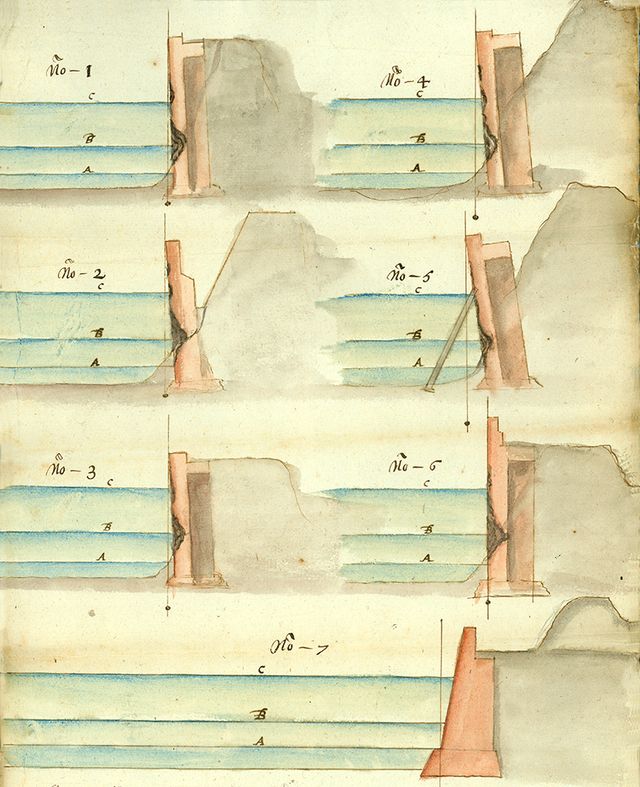 Nõ - 1
C
B
A
Nõ - 4
C
B
A
Nõ - 2
C
B
A
Nõ - 5
C
B
A
Nõ - 3
C
B
A
Nõ - 6
C
B
A
Nõ - 7
C
B
A